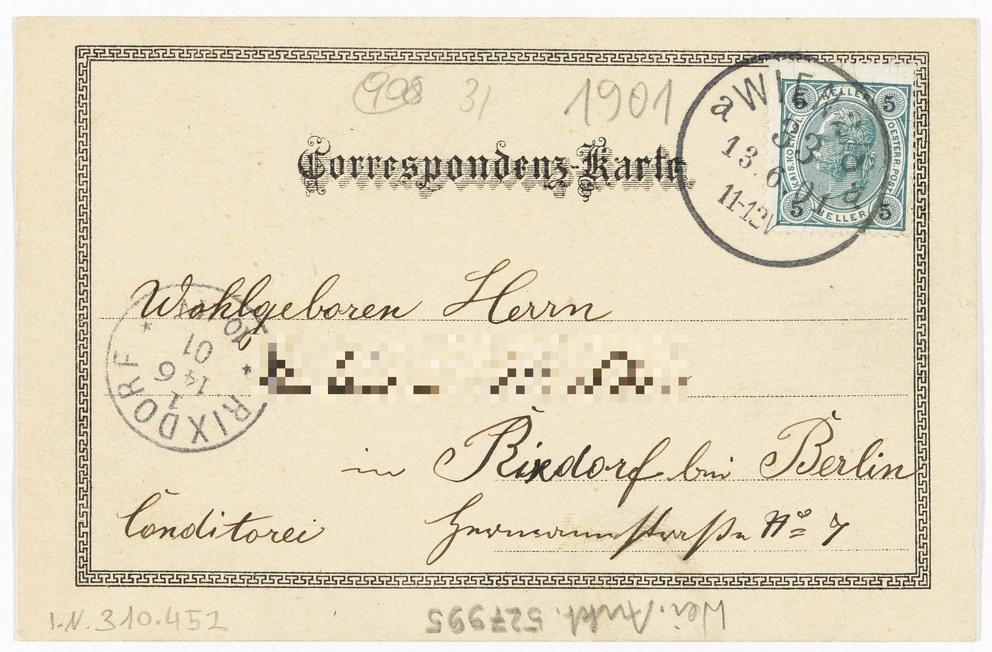 998 31 1901
Correspondenz-Karte
aWIEN
93
13. 6 01
11-12V
KAIS. KOENIGL. OESTERR. POST
5 HELLER 5
5 HELLER 5
Wohlgeboren Herrn
RIXDORF
1
14 6
01
10-11N
in Rixdorf bei Berlin
Conditorei Hermannstraße No 7
I.N. 310.452
Wei. Ankt. 527995